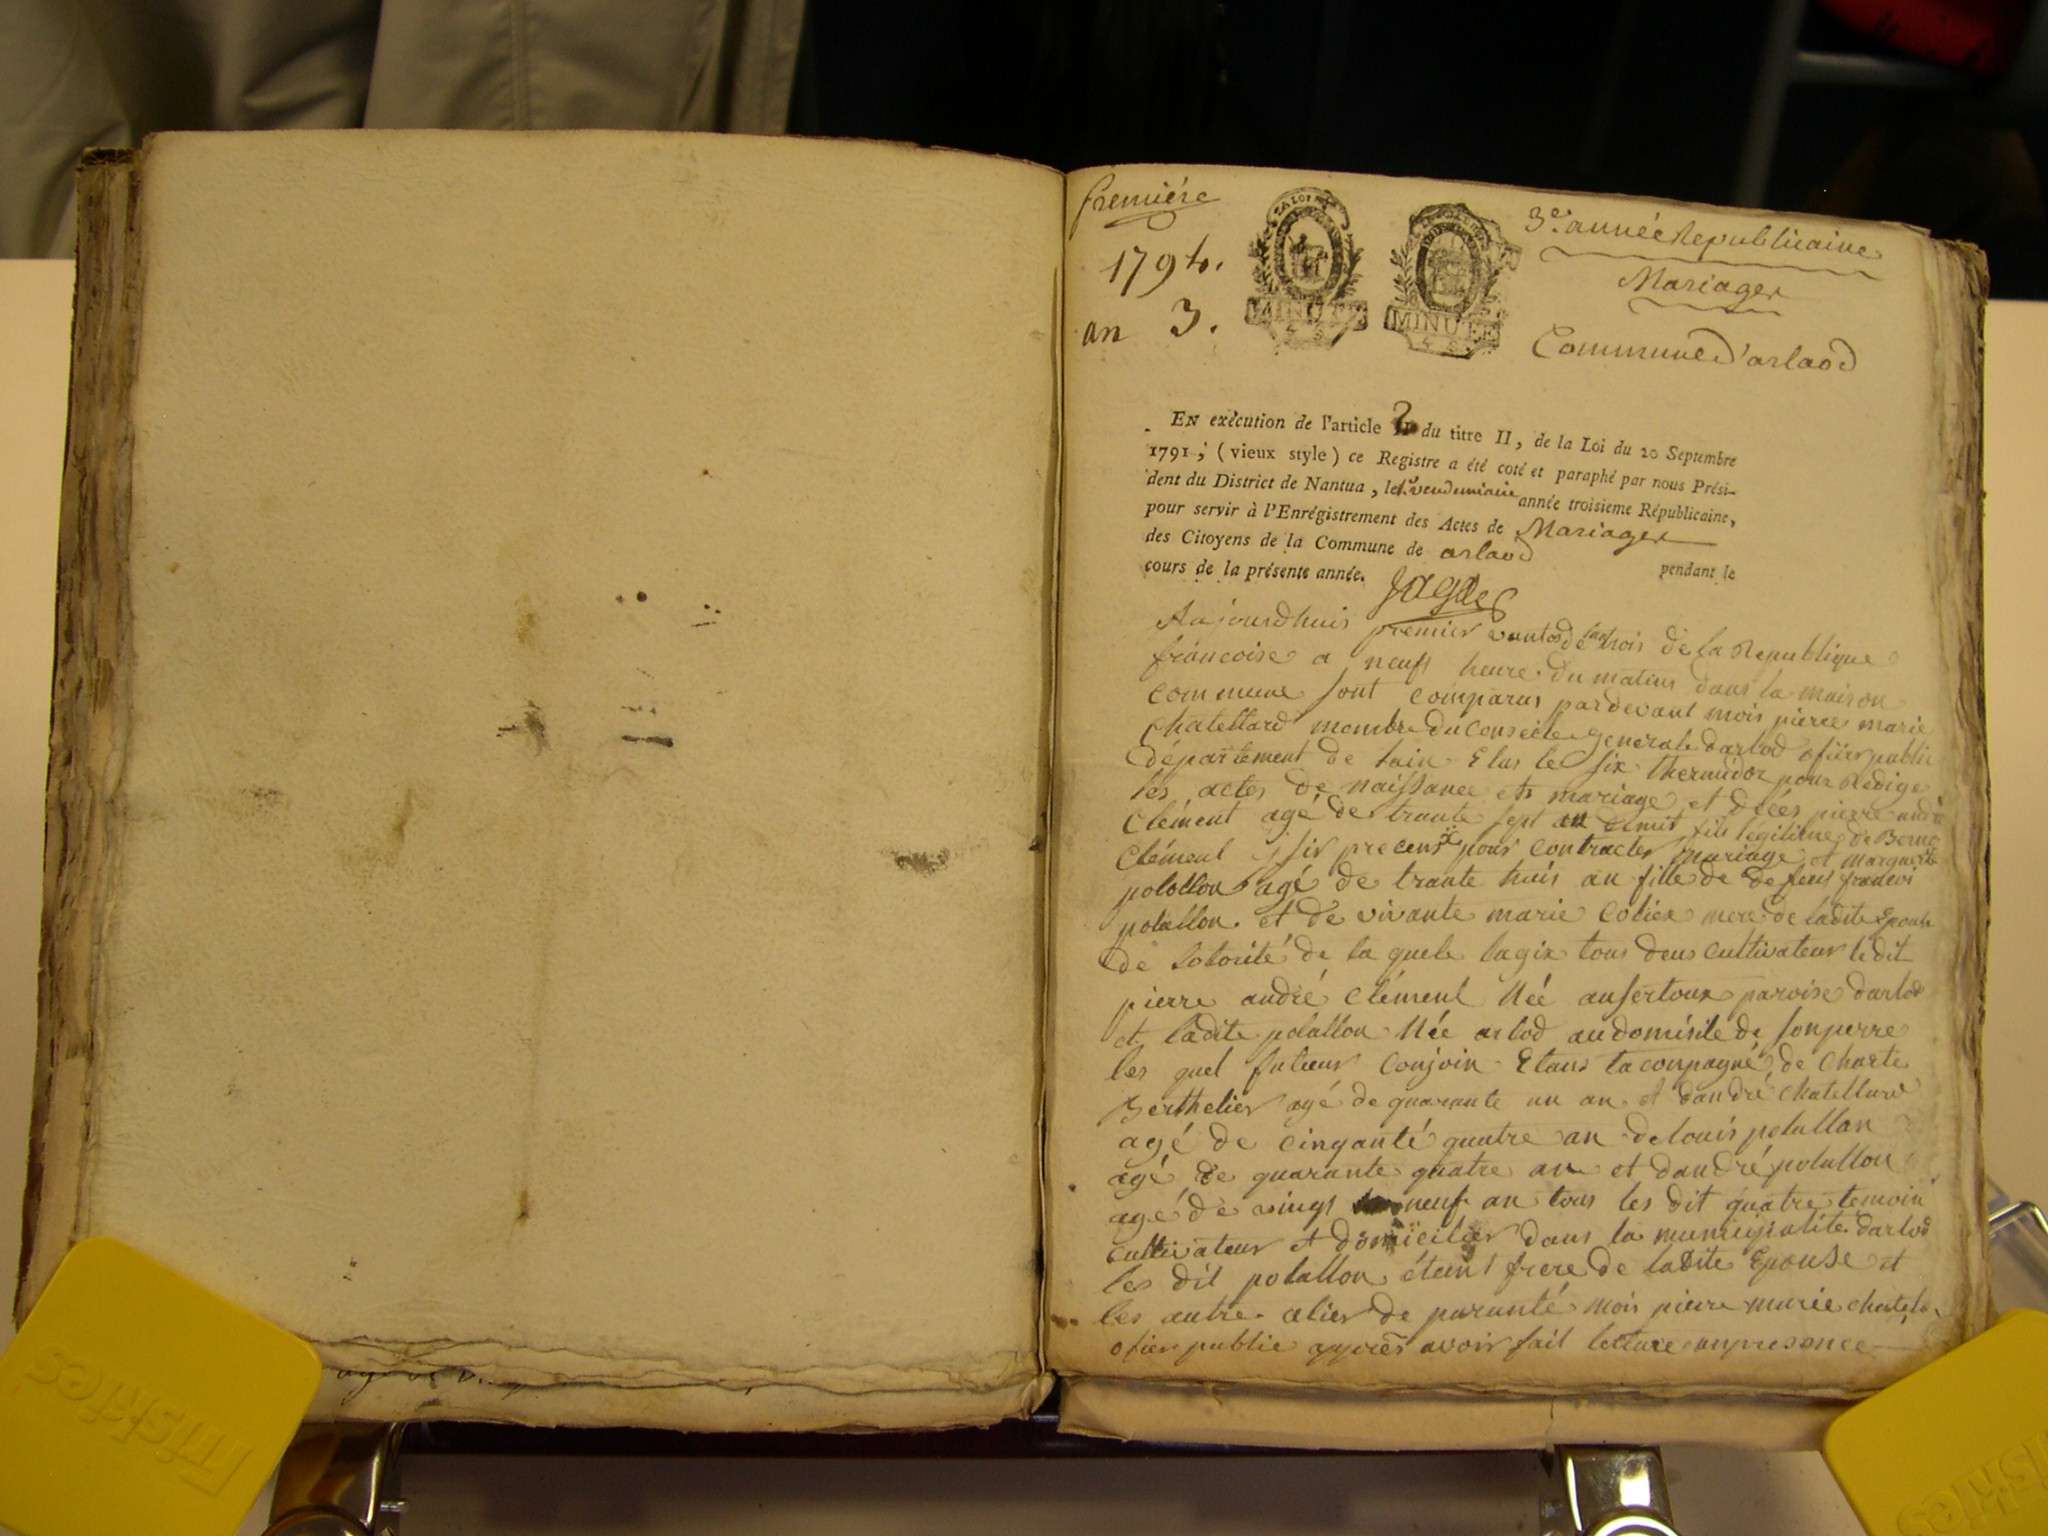 première
1794.
an 3.
LA LOI
MINUTE
MINUTE
3e. année Republicaine
Mariages
Commune d'arlaod
EN exécution de l'article 2 du titre II, de la Loi du 20 Septembre
1791; (vieux style) ce Registre a été coté et paraphé par nous Prési-
dent du District de Nantua, le 1er vendemiaire année troisieme Républicaine,
pour servir à l'Enrégistrement des Actes de Mariages
des Citoyens de la Commune de arlaod pendant le
cours de la présente année.
Aujourdhuis premier vantose lan trois de la Republique
francoise a neuf heure du matins dans la maison
commune sont comparus pardevant mois pierre marie
chatellard membre du conseile generale darlod ofiier public
département de lain Elus le six thermidor pour Redige
les actes de naissance et mariage et décés pierre andré
Clément agé de trante sept an demit fils legitime de
Clément pour contracter mariage et marguerite
polallon agé de trante huis an fille de de feus francois
polallon et de vivante marie mere de ladite Epouse
de lotorité de la quele lagix tous deus cultivateur ledit
pierre andré Clément Néé parroise darlod
et ladite polallon Née arlod au domisile de son perre
les quel futeur conjoin Etans la conpagné de charle
Berthelier agé de quarante un an et dandré chatellard
agé de cinqanté quatre an de louis polallon
agé de quarante quatre an et dandré polallon
agé de vingt neuf an tous les dit quatre temoin
cultivateur et domicilier dans la municipalite darlod
les dit polallon étant frere de ladite Epouse et
les autre alier de paranté mois pierre marie
ofier public appres avoir fait lecture anpresance
Friskies